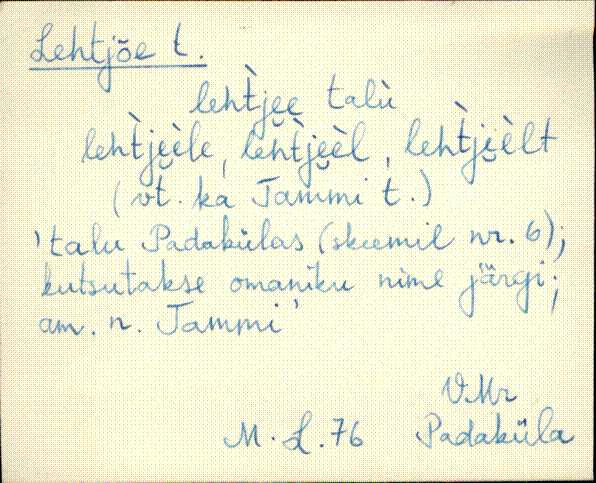 Lehtjõe t.
leht̀jee talù
leht̀jẹèle, leht̀jẹèl, leht̀jẹèlt
(vt. ka Tammi t.)
'talu Padakülas (skeemil nr. 6);
kutsutakse omaniku nime järgi;
am. n. Tammi'
VMr
M. L. 76 Padaküla